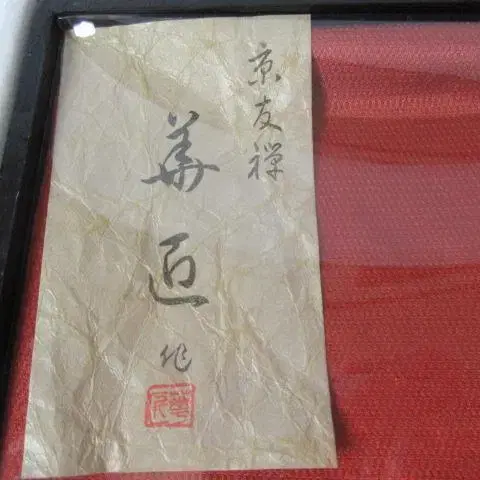 京友禅
華匠作